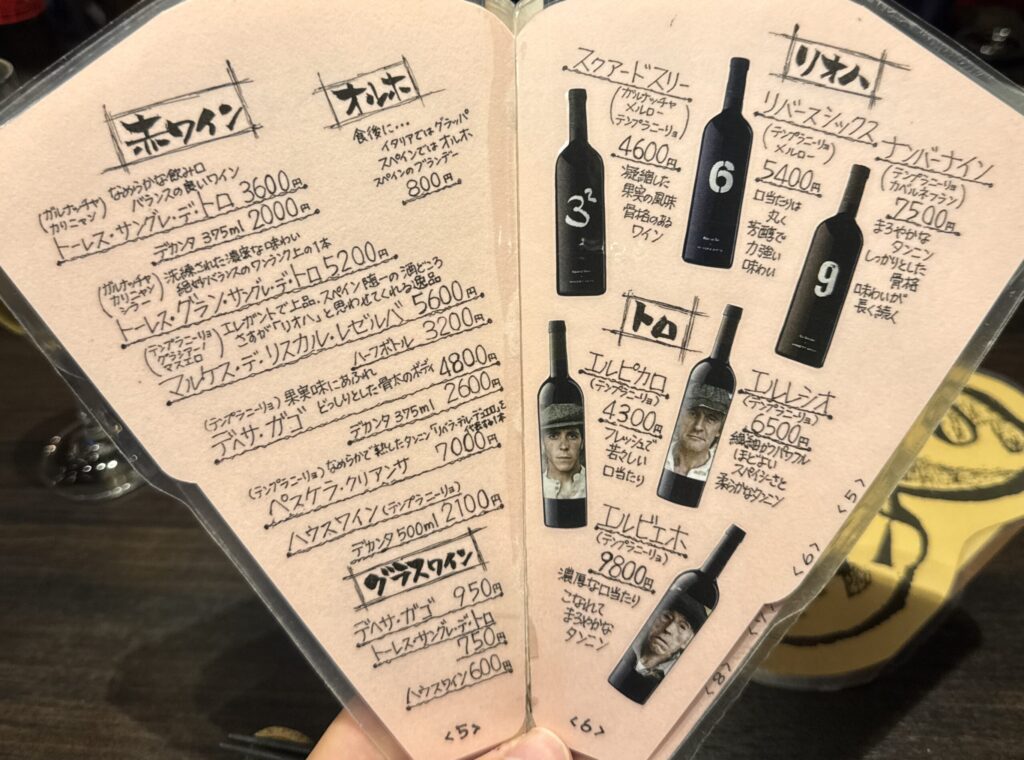 赤ワイン
なめらかな飲み口
バランスの良いワイン
(ガルナッチャ
カリニャン)
トーレス・サングレ・デ・トロ 3600円
デカンタ 375ml 2000円
洗練された濃密な味わい
絶妙バランスのワンランク上の1本
(ガルナッチャ
カリニャン
シラー)
トーレス・グラン・サングレ・デ・トロ 5200円
エレガントで上品、スペイン随一の酒どころ
さすが「リオハ」と思わせてくれる逸品
(テンプラニーリョ
グラシアーノ
マスエロ)
マルケス・デ・リスカル・レゼルバ 5600円
ハーフボトル 3200円
(テンプラニーリョ) 果実味にあふれ
どっしりとした骨太のボディ
デヘサ・ガゴ 4800円
デカンタ 375ml 2600円
(テンプラニーリョ) なめらかで熟したタンニン「リベラ・デル・デュエロ」を
代表する1本
ペスケラ・クリアンサ 7000円
ハウスワイン (テンプラニーリョ)
デカンタ 500ml 2100円
グラスワイン
デヘサ・ガゴ 950円
トーレス・サングレ・デ・トロ
750円
ハウスワイン 600円
<5>
オルホ
食後に・・・
イタリアではグラッパ
スペインではオルホ
スペインのブランデー
800円
リオハ
スクアードスリー
(ガルナッチャ
メルロー
テンプラニーリョ)
4600円
凝縮した
果実の風味
骨格のある
ワイン
3²
リバースシックス
(テンプラニーリョ
メルロー)
5400円
口当たりは
丸く
芳醇で
力強い
味わい
6
ナンバーナイン
(テンプラニーリョ
カベルネフラン)
7500円
まろやかな
タンニン
しっかりとした
骨格
味わいが
長く続く
9
トロ
エルピカロ
(テンプラニーリョ)
4300円
フレッシュで
若さしい
口当たり
エルレシオ
(テンプラニーリョ)
6500円
繊細かつパワフル
ほどよい
スパイシーさと
柔らかなタンニン
エルビエホ
(テンプラニーリョ)
9800円
濃厚な口当たり
こなれて
まろやかな
タンニン
<6>
<5>
<6>
<7>
<8>